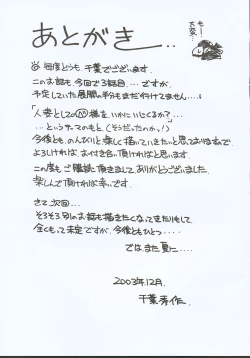 もー
大変…
あとがき…
毎度どうも、千葉でございます。
このお話も、今回で3話目……ですが、
予定していた展開の半分もまだ行けてません……
「人妻としての 様を、いかにいじくるか？…」
……というテーマのもと（そうだったのかっ！）
今後とも、のんびりと楽しく描いていきたいと思っておりますので
よろしければ、お付き合い頂ければと思います。
この度もご購読頂きまして、ありがとうございました。
楽しんで頂ければ幸いです。
さて、次回…
そろそろ別のお話も描きたくなってきたりもして、
全くもって未定ですが、今後ともひとつ・・・・
ではまた夏に……
2003年12月、
千葉秀作、